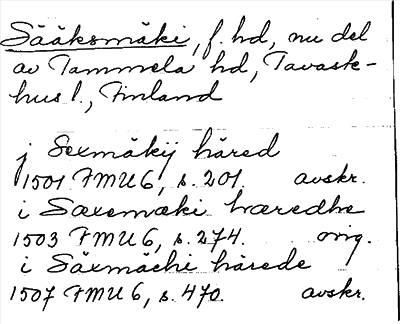 Sääksmäki, f. hd, nu del
av Tammela hd, Tavaste-
hus l., Finland
j Sexmäkij häred
1501 FMU 6, s. 201. avskr.
i Saxemæki hæredhe
1503 FMU 6, s. 274. orig.
i Säxmächi härede
1507 FMU 6, s. 470. avskr.